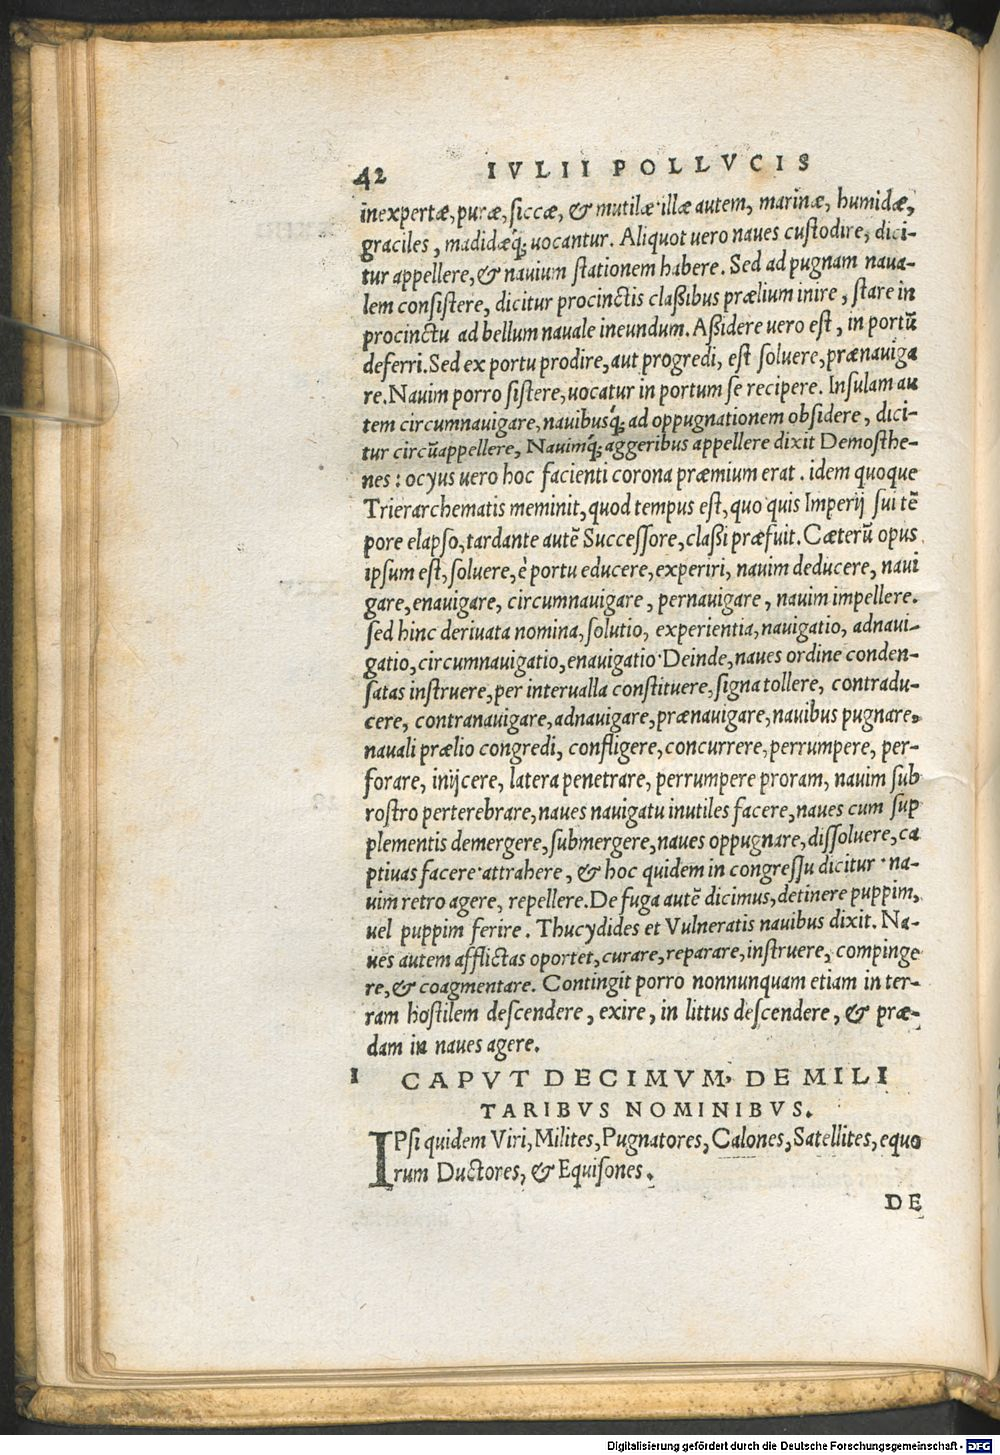 42 IVLII POLLVCIS
inexpertæ, puræ, siccæ, & mutilæ·illæ autem, marinæ, humidæ,
graciles, madidæq́; uocantur. Aliquot uero naues custodire, dici-
tur appellere, & nauium stationem habere. Sed ad pugnam naua-
lem consistere, dicitur procinctis claßibus prælium inire, stare in
procinctu ad bellum nauale ineundum. Aßidere uero est, in portū
deferri. Sed ex portu prodire, aut progredi, est soluere, prænauiga
re. Nauim porro sistere, uocatur in portum se recipere. Insulam au
tem circumnauigare, nauibusq́; ad oppugnationem obsidere, dici-
tur circūappellere, Nauimq́; aggeribus appellere dixit Demosthe-
nes: ocyus uero hoc facienti corona præmium erat. idem quoque
Trierarchematis meminit, quod tempus est, quo quis Imperij sui tē
pore elapso, tardante autē Successore, claßi præfuit. Cæterū opus
ipsum est, soluere, è portu educere, experiri, nauim deducere, naui
gare, enauigare, circumnauigare, pernauigare, nauim impellere.
sed hinc deriuata nomina, solutio, experientia, nauigatio, adnaui-
gatio, circumnauigatio, enauigatio·Deinde, naues ordine conden-
satas instruere, per interualla constituere, signa tollere, contradu-
cere, contranauigare, adnauigare, prænauigare, nauibus pugnare,
nauali prælio congredi, confligere, concurrere, perrumpere, per-
forare, inijcere, latera penetrare, perrumpere proram, nauim sub
rostro perterebrare, naues nauigatu inutiles facere, naues cum sup
plementis demergere, submergere, naues oppugnare, dissoluere, ca
ptiuas facere·attrahere, & hoc quidem in congressu dicitur·na-
uim retro agere, repellere. De fuga autē dicimus, detinere puppim,
uel puppim ferire. Thucydides et Vulneratis nauibus dixit. Na-
ues autem afflictas oportet, curare, reparare, instruere, compinge
re, & coagmentare. Contingit porro nonnunquam etiam in ter-
ram hostilem descendere, exire, in littus descendere, & præ-
dam in naues agere.
I CAPVT DECIMVM, DE MILI
TARIBVS NOMINIBVS.
IPsi quidem Viri, Milites, Pugnatores, Calones, Satellites, equo
rum Ductores, & Equisones.
DE
Digitalisierung gefördert durch die Deutsche Forschungsgemeinschaft - DFG